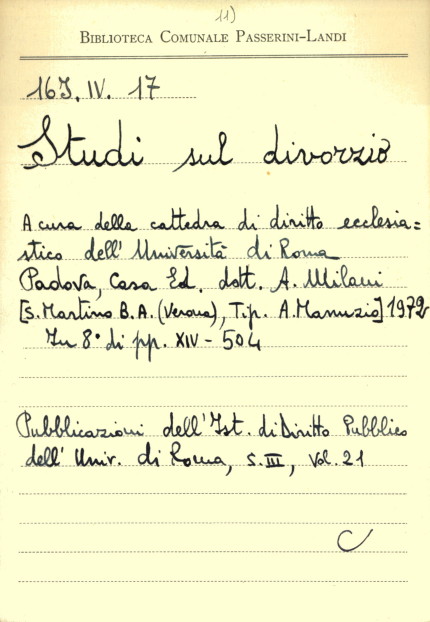 11)
BIBLIOTECA COMUNALE PASSERINI-LANDI
16J. IV. 17
Studi sul divorzio
A cura della cattedra di diritto ecclesia=
stico dell'Università di Roma
Padova, Casa Ed. dott. A. Milani
[S. Martino B. A. (Verona), Tip. A. Manuzio] 1972
In 8° di pp. XIV - 504
Pubblicazioni dell'Ist. di Diritto Pubblico
dell'Univ. di Roma, S. III, Vol. 21
C